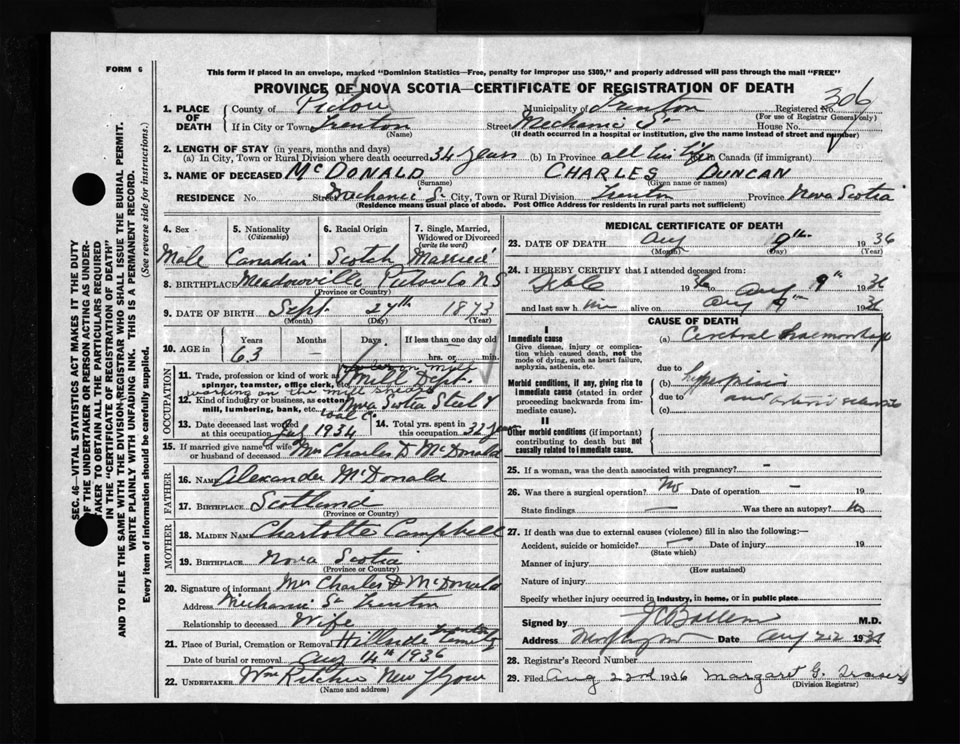 FORM 6
This form if placed in an envelope, marked "Dominion Statistics—Free, penalty for improper use $300," and properly addressed will pass through the mail "FREE"
PROVINCE OF NOVA SCOTIA—CERTIFICATE OF REGISTRATION OF DEATH
1. PLACE OF DEATH
County of Pictou Municipality of Trenton Registered No. 306
(For use of Registrar General only)
If in City or Town Trenton Street Mechanic St House No.
(Name) (If death occurred in a hospital or institution, give the name instead of street and number)
2. LENGTH OF STAY (in years, months and days)
(a) In City, Town or Rural Division where death occurred 34 years (b) In Province all his life In Canada (if immigrant)
3. NAME OF DECEASED McDONALD CHARLES DUNCAN
(Surname) (Given name or names)
RESIDENCE No. Street Mechanic St City, Town or Rural Division Trenton Province Nova Scotia
(Residence means usual place of abode. Post Office Address for residents in rural parts not sufficient)
4. Sex 5. Nationality (Citizenship) 6. Racial Origin 7. Single, Married, Widowed or Divorced (write the word)
Male Canadian Scotch Married
8. BIRTHPLACE Meadowville Pictou Co N S
(Province or Country)
9. DATE OF BIRTH Sept. 27th 1873
(Month) (Day) (Year)
10. AGE in Years Months Days If less than one day
63 - hrs. or min.
OCCUPATION
11. Trade, profession or kind of work as spinner, teamster, office clerk, etc. Mill Dept.
working on the mill
12. Kind of industry or business, as cotton mill, lumbering, bank, etc. Nova Scotia Steel & Coal Co.
13. Date deceased last worked at this occupation July 1934
14. Total yrs. spent in this occupation 32 years
15. If married give name of wife or husband of deceased Mrs Charles D McDonald
FATHER
16. NAME Alexander McDonald
17. BIRTHPLACE Scotland
(Province or Country)
MOTHER
18. MAIDEN NAME Charlotte Campbell
19. BIRTHPLACE Nova Scotia
(Province or Country)
20. Signature of informant Mrs Charles D McDonald
Address Mechanic St Trenton
Relationship to deceased Wife
21. Place of Burial, Cremation or Removal Hillside Cemetery Trenton
Date of burial or removal Aug 14th 1936
22. UNDERTAKER Wm Ritchie New Glasgow
(Name and address)
MEDICAL CERTIFICATE OF DEATH
23. DATE OF DEATH Aug 9th 1936
(Month) (Day) (Year)
24. I HEREBY CERTIFY that I attended deceased from:
1936 to Aug 9th 1936
and last saw him alive on Aug 9th 1936
CAUSE OF DEATH
I
Immediate cause
Give disease, injury or complication which caused death, not the mode of dying, such as heart failure, asphyxia, asthenia, etc.
(a) Cerebral haemorrhage
due to
Morbid conditions, if any, giving rise to immediate cause (stated in order proceeding backwards from immediate cause).
(b)
due to and arterio sclerosis
(c)
II
Other morbid conditions (if important) contributing to death but not causally related to immediate cause.
25. If a woman, was the death associated with pregnancy? -
26. Was there a surgical operation? No Date of operation - 19
State findings - Was there an autopsy? No
27. If death was due to external causes (violence) fill in also the following:—
Accident, suicide or homicide? - Date of injury 19
(State which)
Manner of injury
(How sustained)
Nature of injury
Specify whether injury occurred in industry, in home, or in public place
Signed by J C Ballem M.D.
Address Date Aug 22 1936
28. Registrar's Record Number
29. Filed Aug 22nd 1936 Margaret G.
(Division Registrar)
SEC. 46—VITAL STATISTICS ACT MAKES IT THE DUTY
OF THE UNDERTAKER OR PERSON ACTING AS UNDERTAKER
TO OBTAIN ALL THE PARTICULARS REQUIRED
IN THE "CERTIFICATE OF REGISTRATION OF DEATH"
AND TO FILE THE SAME WITH THE DIVISION REGISTRAR WHO SHALL ISSUE THE BURIAL PERMIT.
WRITE PLAINLY WITH UNFADING INK. THIS IS A PERMANENT RECORD.
Every item of information should be carefully supplied. (See reverse side for instructions.)